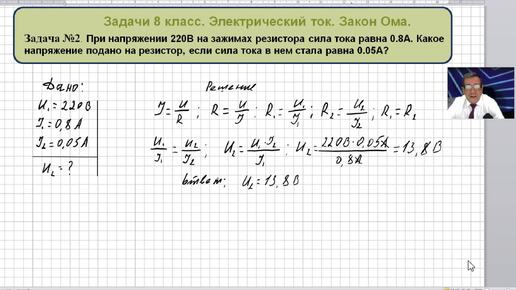 Задачи 8 класс. Электрический ток. Закон Ома.
Задача №2. При напряжении 220В на зажимах резистора сила тока равна 0.8А. Какое
напряжение подано на резистор, если сила тока в нем стала равна 0.05А?
Дано:
U₁=220В
I₁=0,8А
I₂=0,05А
U₂=?
Решение
I=U/R; R=U/I; R₁=U₁/I₁; R₂=U₂/I₂; R₁=R₂
U₁/I₁=U₂/I₂; U₂=U₁·I₂/I₁; U₂=220В·0,05А/0,8А=13,8В
Ответ: U₂=13,8В